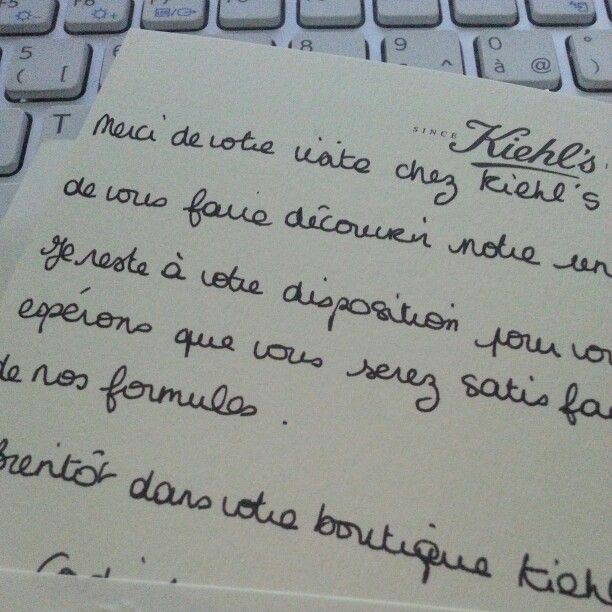 5 ( [
8
9 ^
0 à @
°
T
SINCE Kiehl's
Merci de votre visite chez Kiehl's
de vous faire découvrir notre un
Je reste à votre disposition pour vo
espérons que vous serez satisfa
de nos formules.
Bientôt dans votre boutique Kiehl